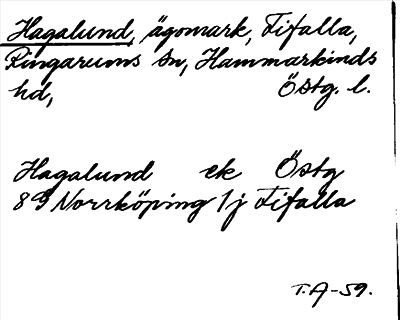 Hagalund, ägomark, Fifalla,
Ringarums sn, Hammarkinds
hd, Östg. l.
Hagalund ek Östg
8 G Norrköping 1j Fifalla
T.A-59.